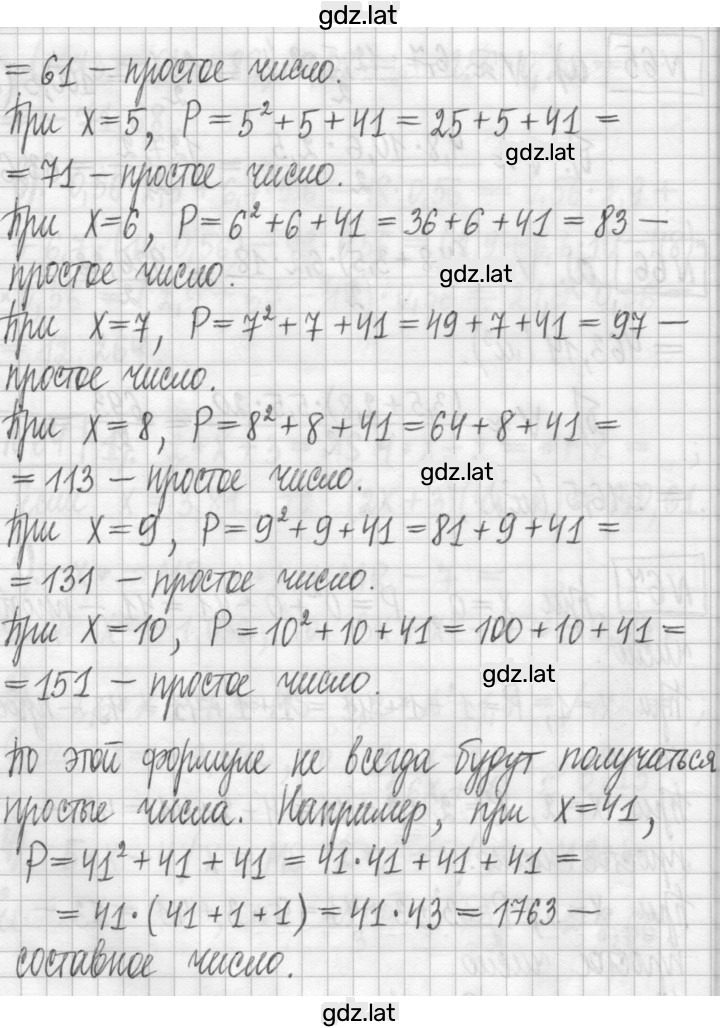 gdz.lat
= 61 — простое число.
При x=5, P = 5²+5+41 = 25+5+41 =
gdz.lat
= 71 — простое число.
При x=6, P = 6²+6+41 = 36+6+41 = 83 —
простое число.
gdz.lat
При x=7, P = 7²+7+41 = 49+7+41 = 97 —
простое число.
При x=8, P = 8²+8+41 = 64+8+41 =
= 113 — простое число.
gdz.lat
При x=9, P = 9²+9+41 = 81+9+41 =
= 131 — простое число.
При x=10, P = 10²+10+41 = 100+10+41 =
= 151 — простое число.
gdz.lat
По этой формуле не всегда будут получаться
простые числа. Например, при x=41,
P = 41²+41+41 = 41·41+41+41 =
= 41·(41+1+1) = 41·43 = 1763 —
составное число.
gdz.lat